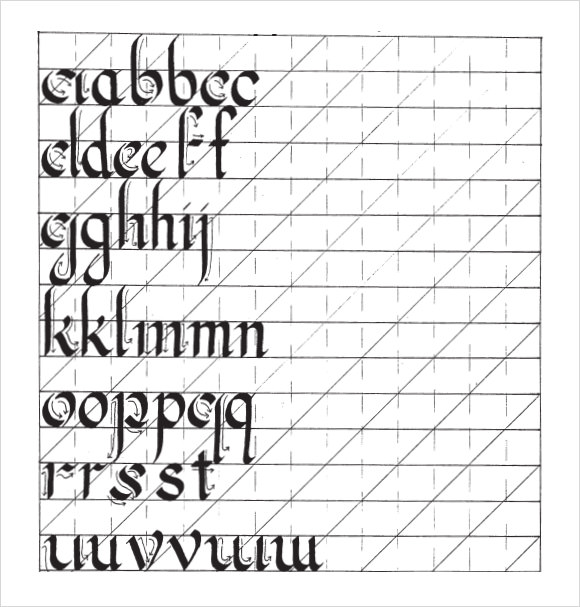 aabbcc
ddeeff
gghhij
kklmmn
ooppqq
rrsst
uuvvww